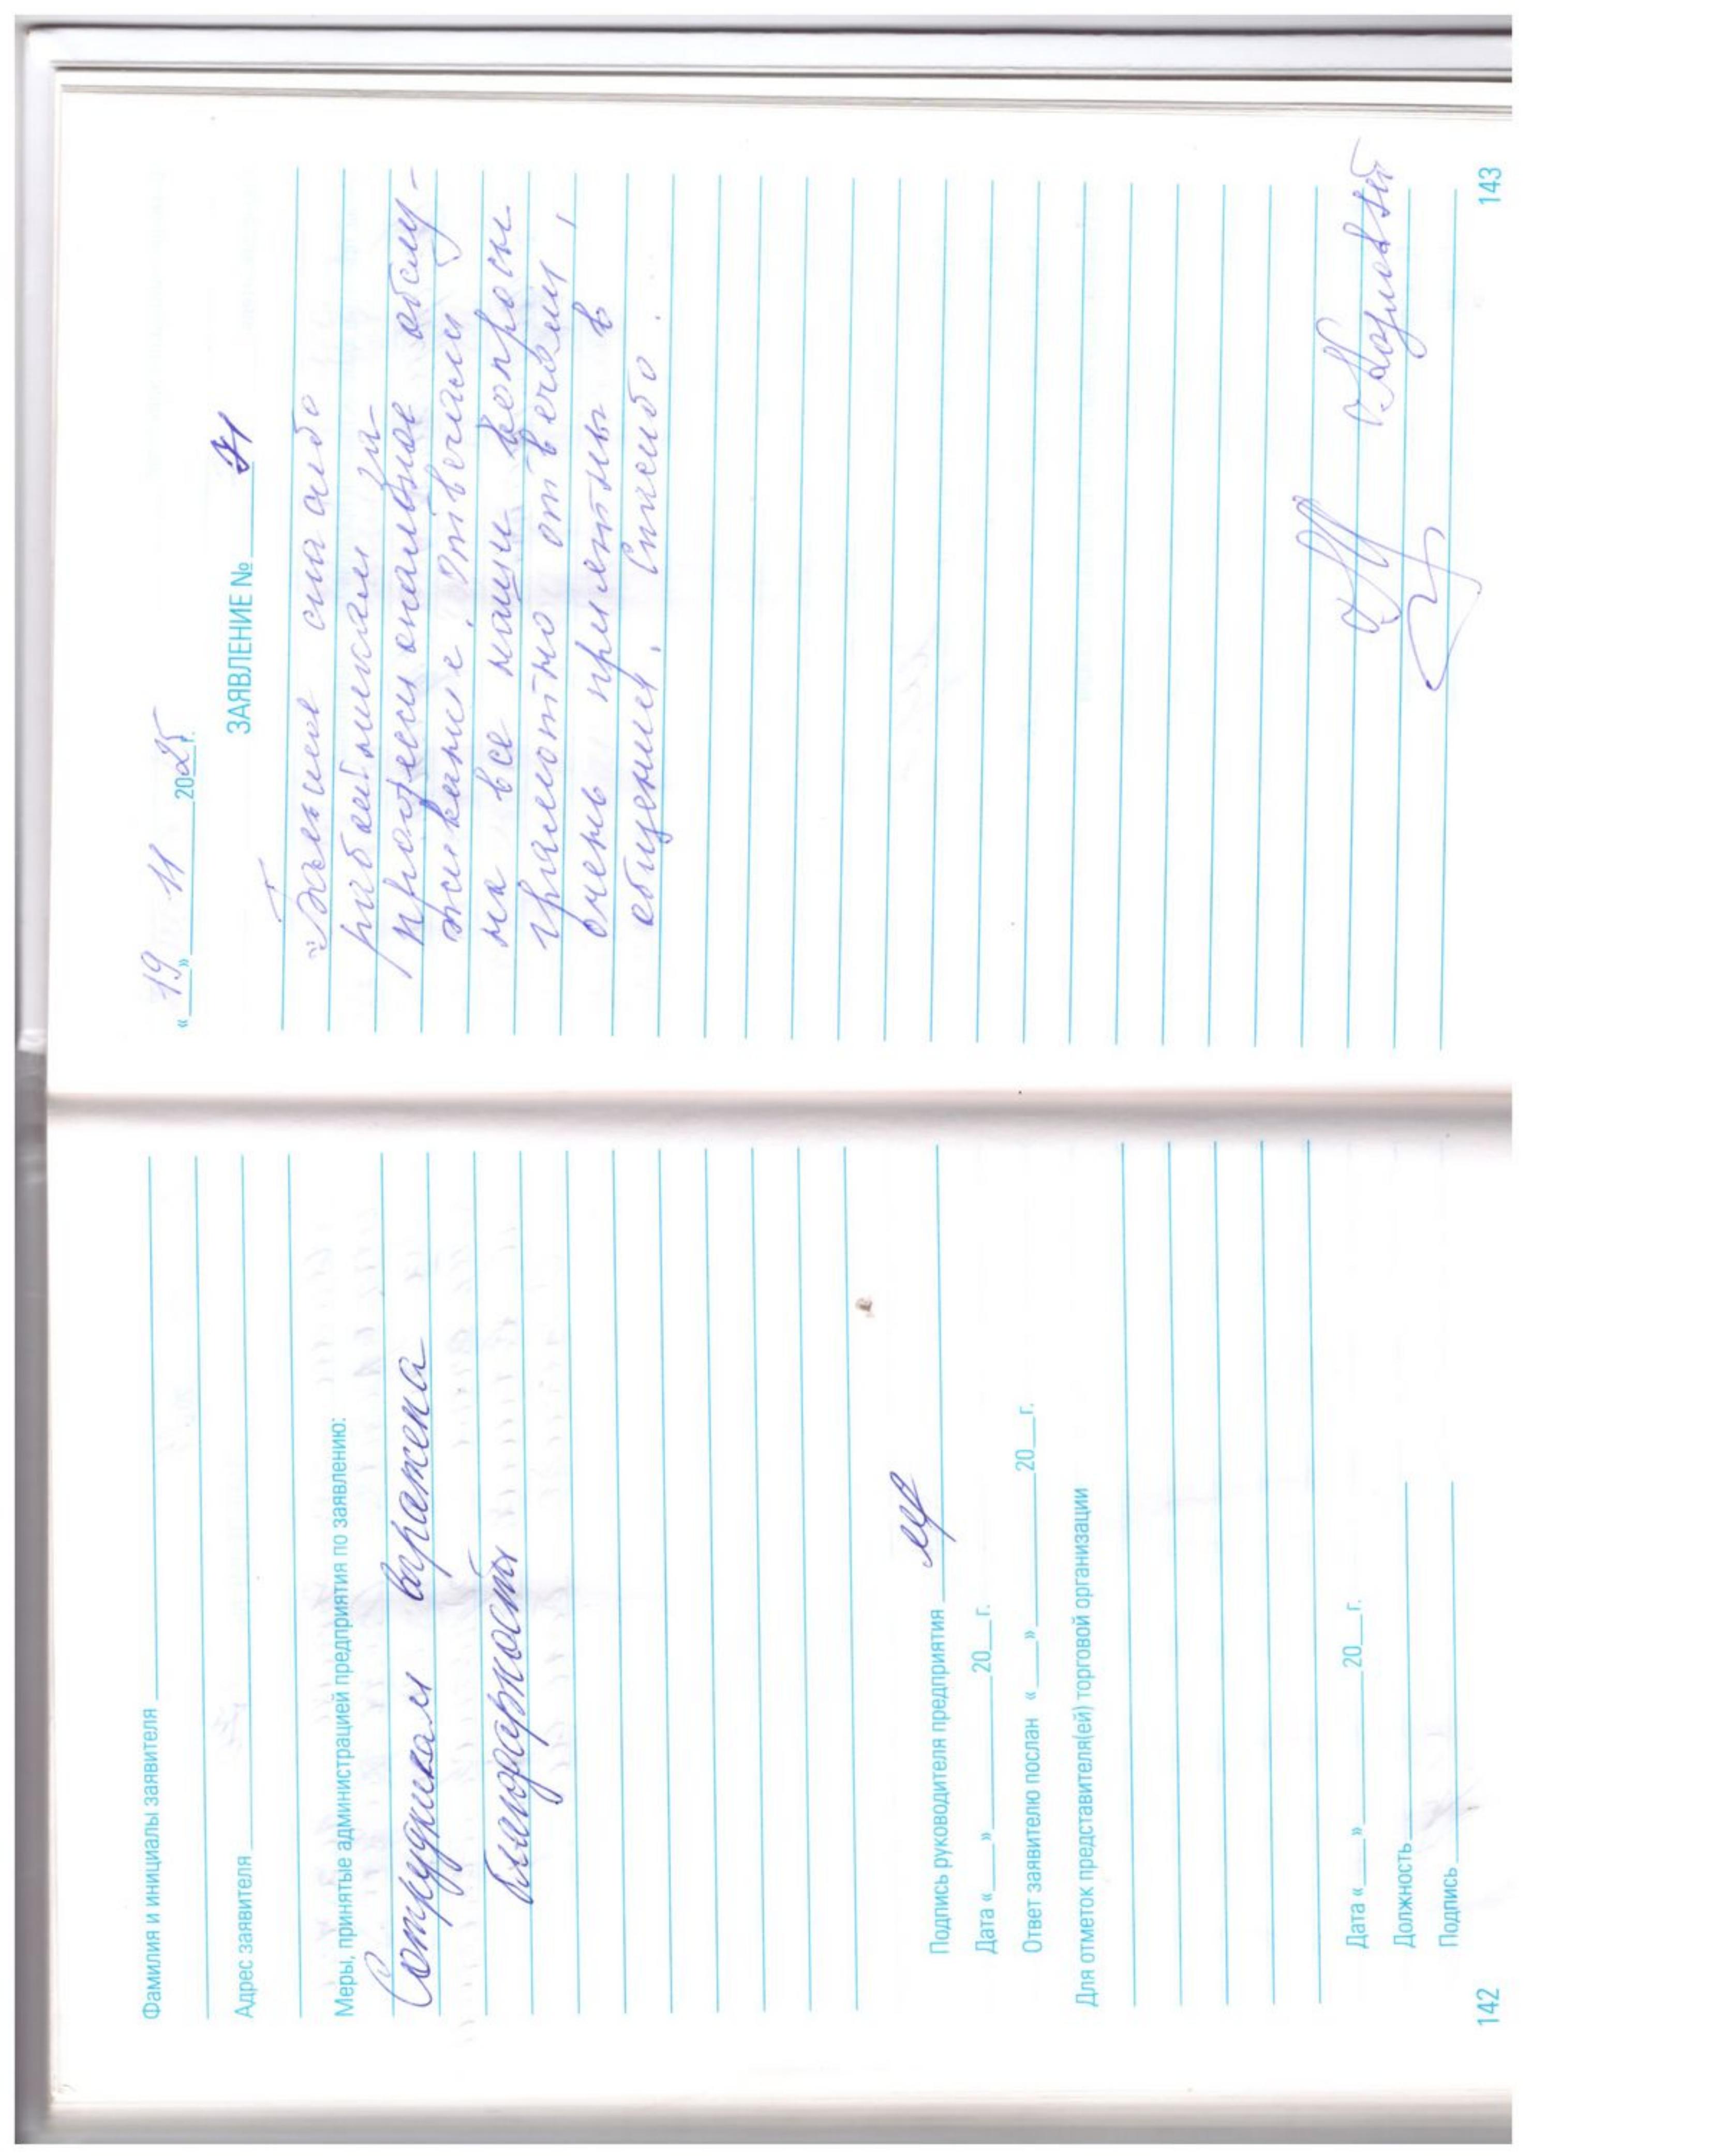 Фамилия и инициалы заявителя
Адрес заявителя
Меры, принятые администрацией предприятия по заявлению:
Сотрудникам выражена
благодарность
Подпись руководителя предприятия
Дата «___»________20__г.
Ответ заявителю послан «___»________20__г.
Для отметок представителя(ей) торговой организации
Дата «___»________20__г.
Должность
Подпись
142
«19» 11 2025 г.
ЗАЯВЛЕНИЕ № 71
Большое спасибо
работникам за
профессиональное обслу-
живание. Отвечали
на все наши вопросы
грамотно отвечали,
очень приятны в
общении. Спасибо.
143